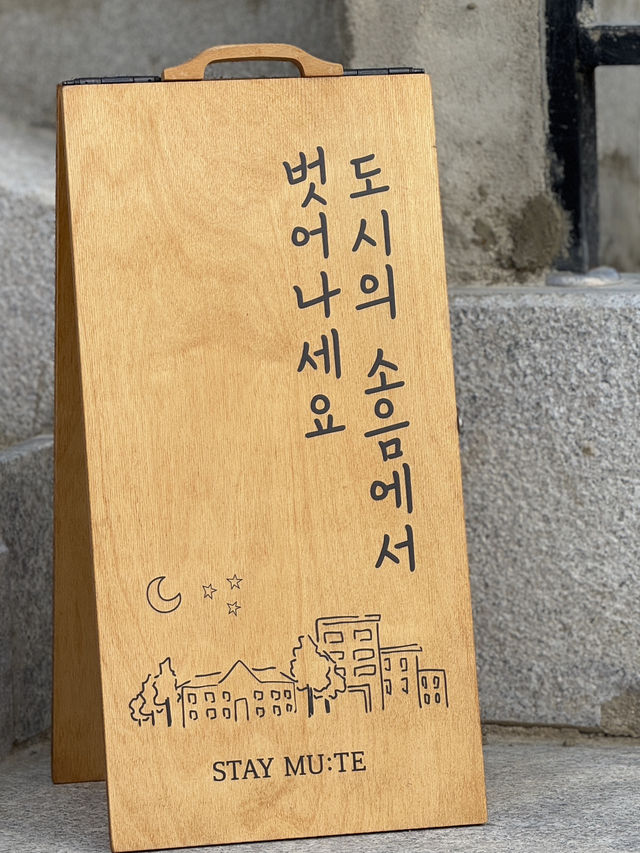 도시의 소음에서
벗어나세요
STAY MU:TE